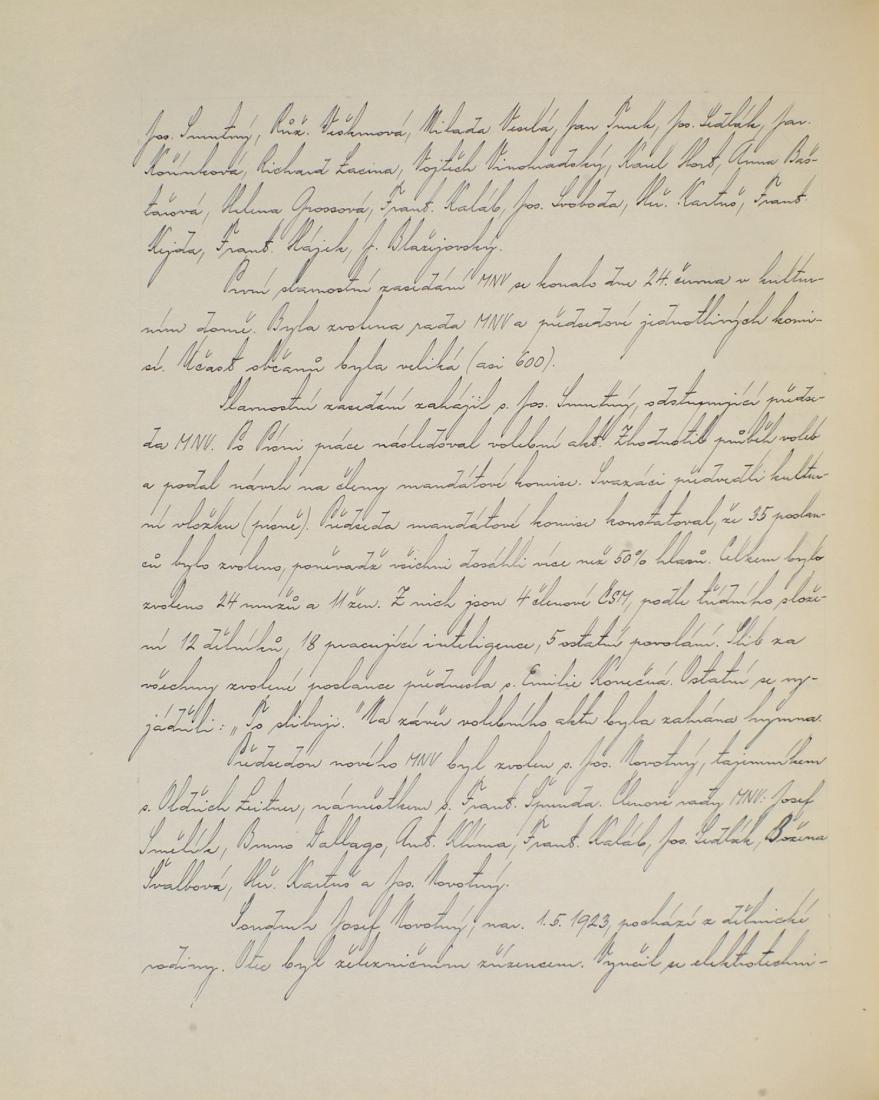 Jos. Smutný, Růž. Veškrnová, Milada Veselá, Jan Šmek, Jos. Sedlák, Jar.
Kořínková, Richard Lacina, Vojtěch Vinohradský, Karel Hort, Anna Baš-
tařová, Helena Grossová, Frant. Kaláb, Jos. Svoboda, Hu. Kartuš, Frant.
Kejda, Frant. Hájek, J. Blažejovský.
První slavnostní zasedání MNV se konalo dne 24. června v kultur-
ním domě. Byla zvolena rada MNV a předsedové jednotlivých komi-
sí. Účast občanů byla veliká (asi 600).
Slavnostní zasedání zahájil s. Jos. Smutný, odstupující předse-
da MNV. Po Písni práce následoval volební akt. Zhodnotil průběh voleb
a podal návrh na členy mandátové komise. Svazáci předvedli kultur-
ní vložku (písně). Předseda mandátové komise konstatoval, že 35 poslan-
ců bylo zvoleno, poněvadž všichni dosáhli více než 50% hlasů. Celkem bylo
zvoleno 24 mužů a 11 žen. Z nich jsou 4 členové ČSM, podle třídního slože-
ní 12 dělníků, 18 pracující inteligence, 5 ostatní povolání. Slib za
všechny zvolené poslance přednesla s. Emilie Konečná. Ostatní se vy-
jádřili: "To slibuji." Na závěr volebního aktu byla zahrána hymna.
Předsedou nového MNV byl zvolen s. Jos. Novotný, tajemníkem
s. Oldřich Leitner, náměstkem s. Frant. Špunda. Členové rady MNV: Josef
Smělík, Bruno Dallago, Ant. Klíma, Frant. Kaláb, Jos. Sedlák, Božena
Švalbová, Hu. Kartuš a Jos. Novotný.
Soudruh Josef Novotný, nar. 1.5. 1923, pochází z dělnické
rodiny. Otec byl železničním zřízencem. Vyučil se elektrotechni-